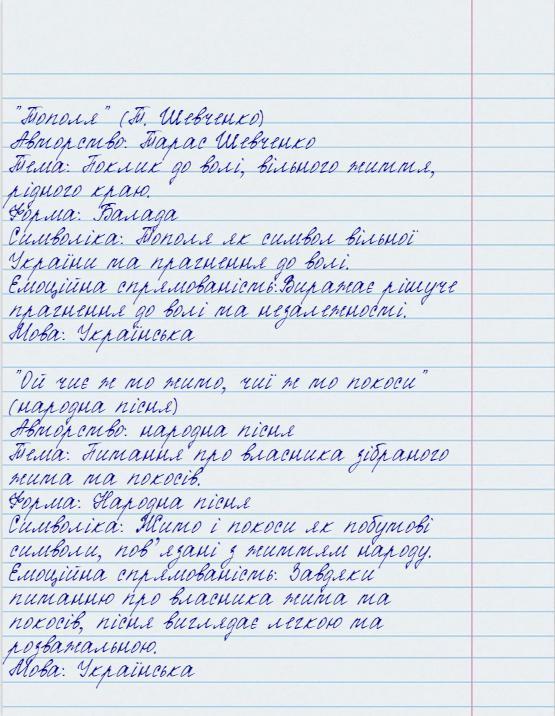 "Тополя" (Т. Шевченко)
Авторство: Тарас Шевченко
Тема: Поклик до волі, вільного життя,
рідного краю.
Форма: Балада
Символіка: Тополя як символ вільної
України та прагнення до волі.
Емоційна спрямованість:Виражає рішуче
прагнення до волі та незалежності.
Мова: Українська
"Ой чиє ж то жито, чиї ж то покоси"
(народна пісня)
Авторство: народна пісня
Тема: Питання про власника зібраного
жита та покосів.
Форма: Народна пісня
Символіка: Жито і покоси як побутові
символи, пов'язані з життям народу.
Емоційна спрямованість: Завдяки
питанню про власника жита та
покосів, пісня виглядає легкою та
розважальною.
Мова: Українська